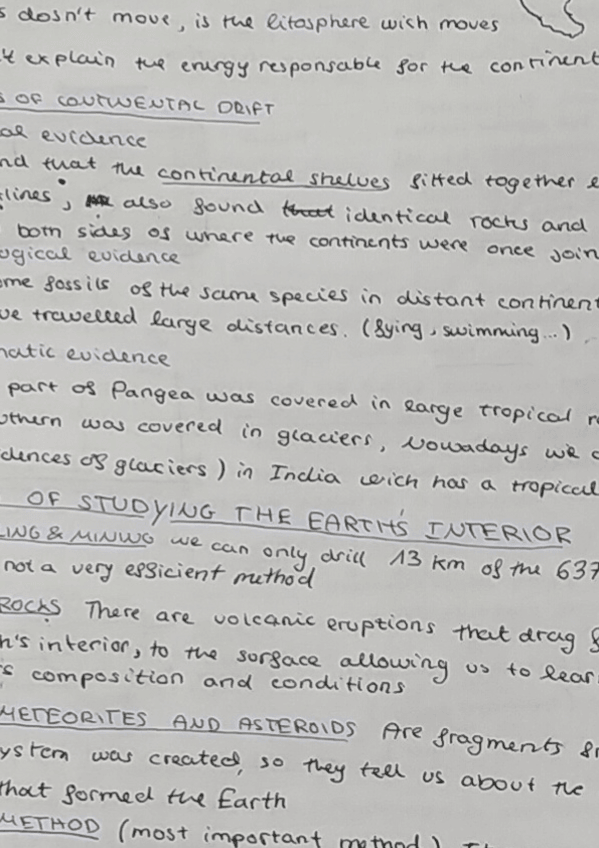 dosn't move, is the litosphere wich moves
explain the energy responsable for the continent
OF CONTINENTAL DRIFT
evidence
that the continental shelves fitted together
lines, also found that identical rocks and
both sides of where the continents were once join
ogical evidence
me fossils of the same species in distant continent
ve travelled large distances. (flying, swimming...)
matic evidence
part of Pangea was covered in large tropical
thern was covered in glaciers, Nowadays we
dences of glaciers) in India wich has a tropical
OF STUDYING THE EARTH'S INTERIOR
LING & MINING we can only drill 13 km of the 637
not a very efficient method
ROCKS There are volcanic eruptions that drag
h's interior, to the surface allowing us to lear
's composition and conditions
METEORITES AND ASTEROIDS Are fragments
ystem was created, so they tell us about the
that formed the Earth
METHOD (most important method)